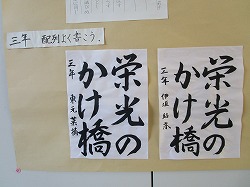 三年 配列よく書こう。
栄光の
かけ橋
三年
栄光の
かけ橋
三年 東元